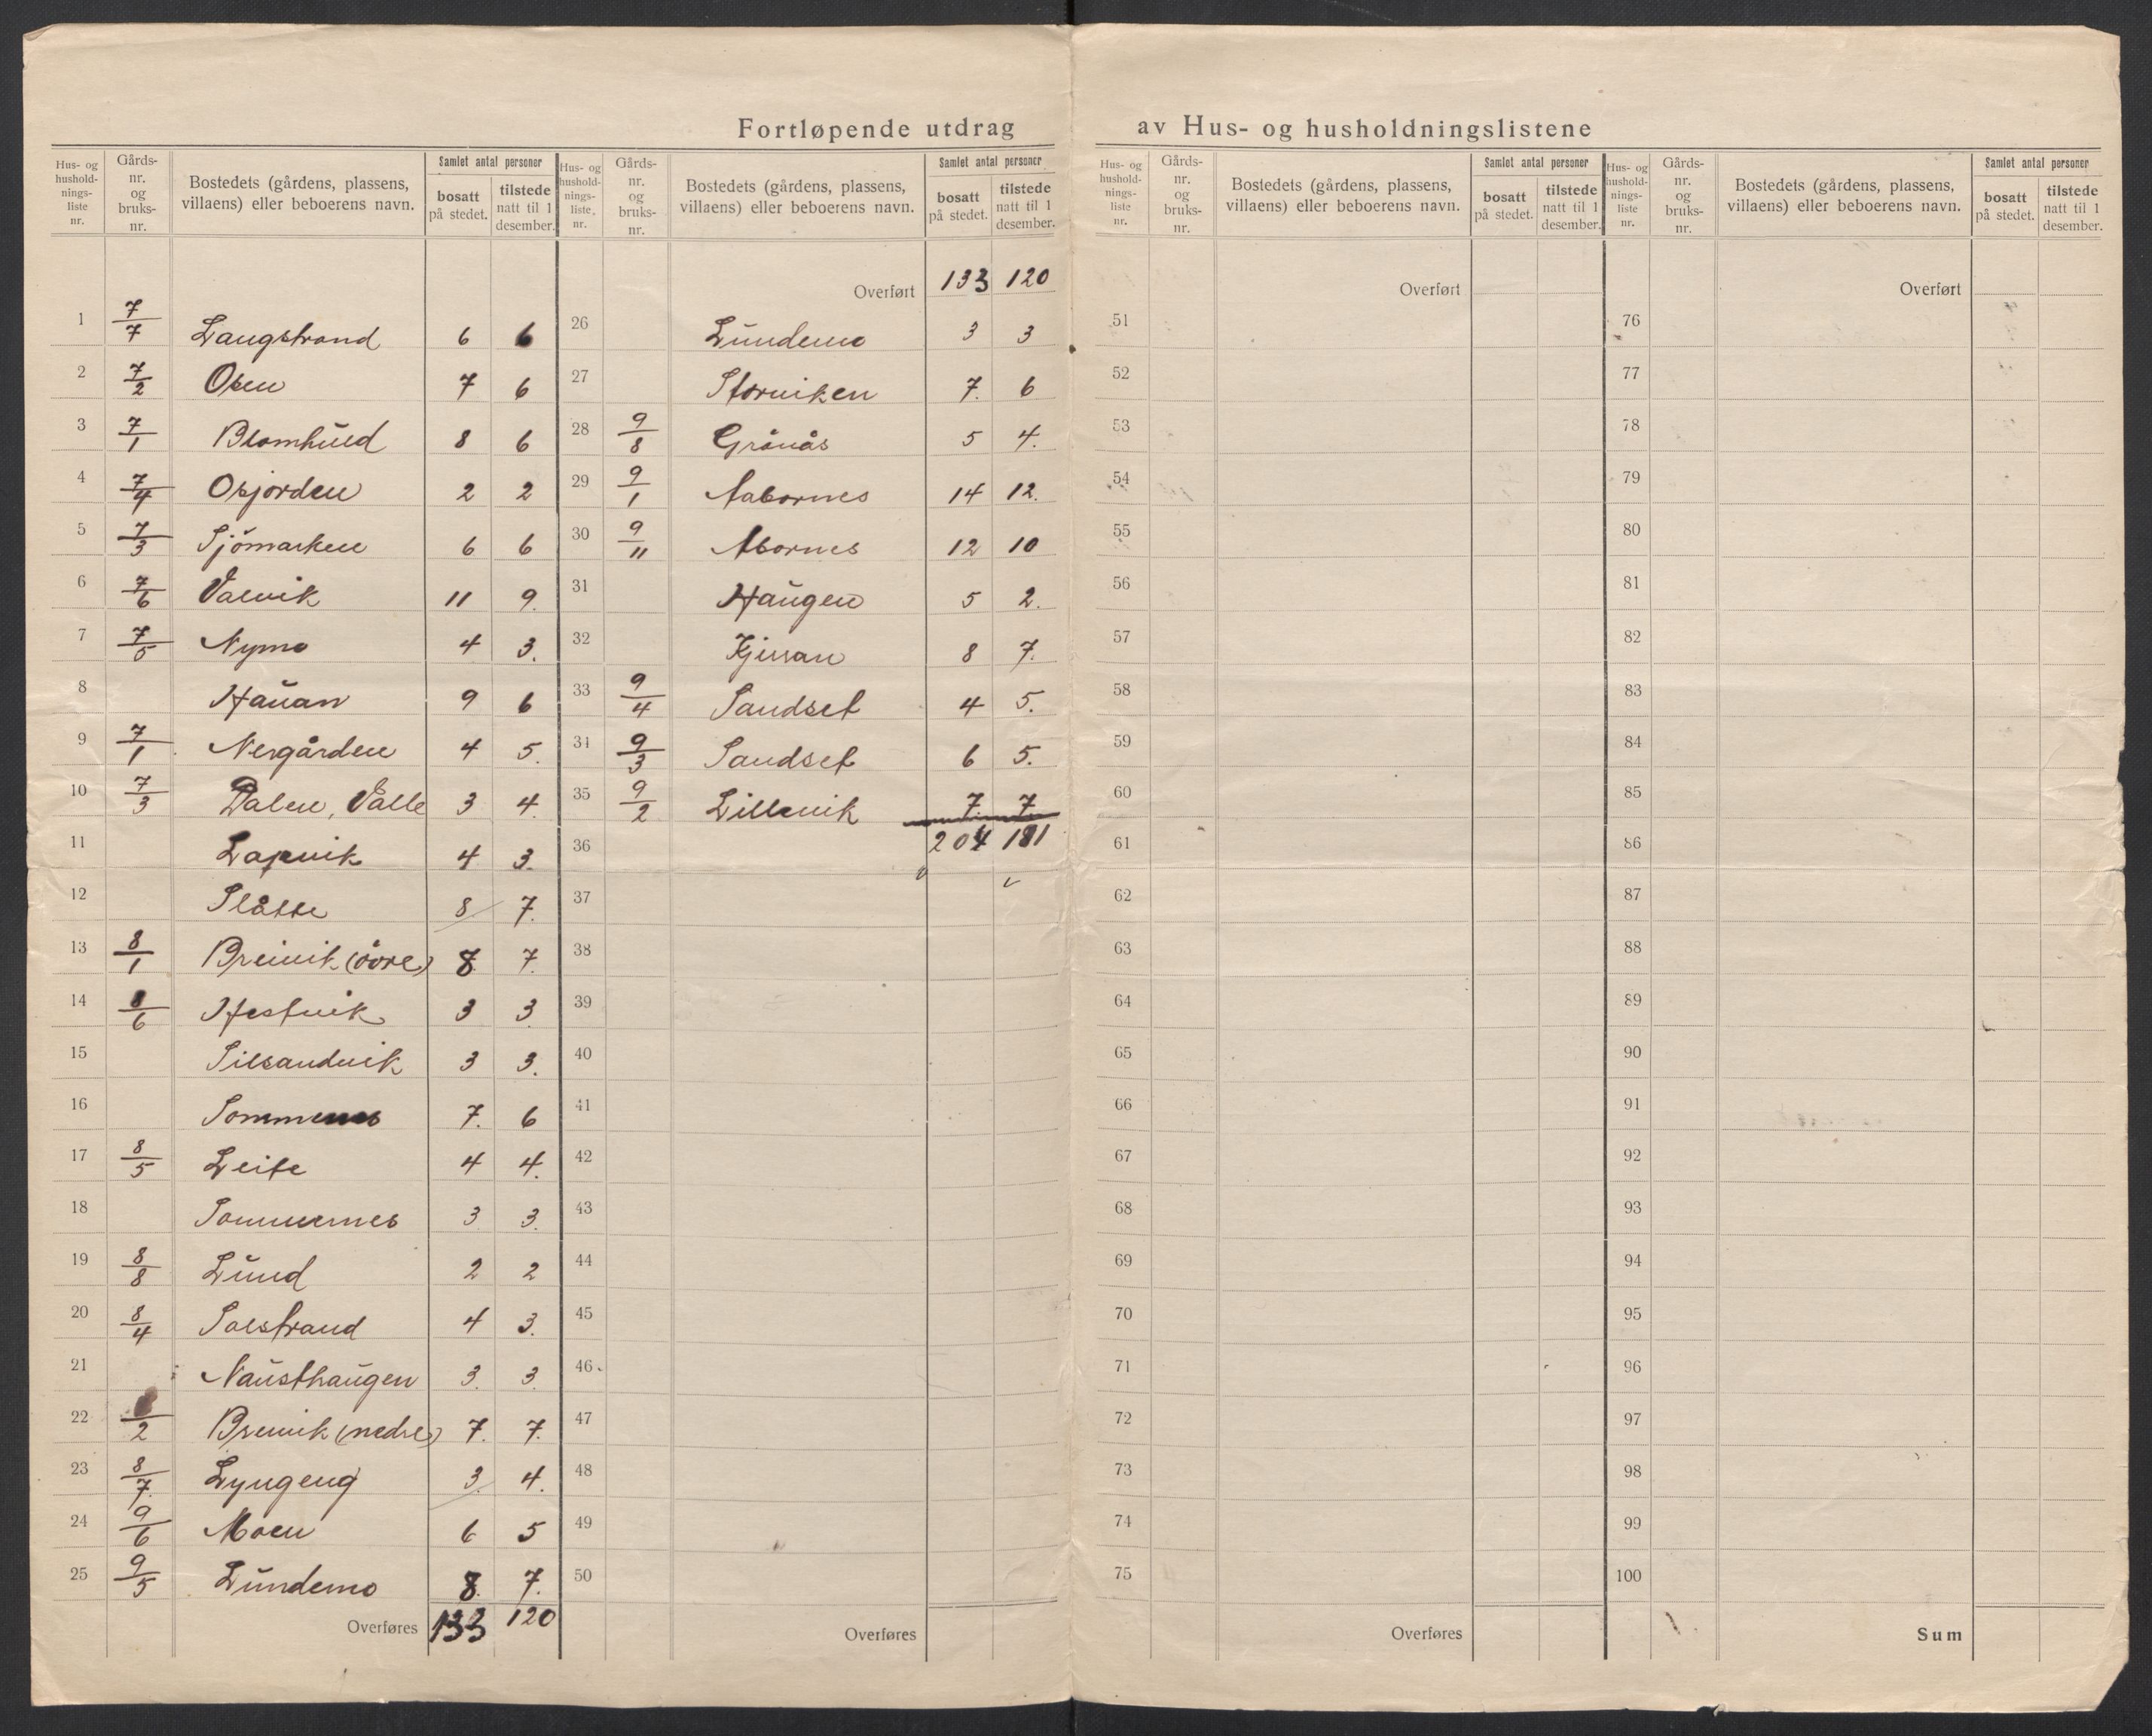 Fortløpende utdrag av Hus- og husholdningslistene
Hus- og hushold-nings-liste nr. | Gårds-nr. og bruks-nr. | Bostedets (gårdens, plassens, villaens) eller beboerens navn. | Samlet antal personer | bosatt på stedet. | tilstede natt til 1 desember.
1 | 7/7 | Langstrand | 6 | 6
2 | 7/2 | Osen | 7 | 6
3 | 7/1 | Blomhuld | 8 | 6
4 | 7/4 | Osjorden | 2 | 2
5 | 7/3 | Sjömarken | 6 | 6
6 | 7/6 | Valvik | 11 | 9.
7 | 7/5 | Nymo | 4 | 3.
8 | Hauan | 9 | 6
9 | 7/1 | Nergården | 4 | 5.
10 | 7/3 | Dalen, Valle | 3 | 4.
11 | 4 | 3.
12 | Slåtte | 8 | 7.
13 | 8/1 | Breivik (övre) | 8 | 7.
14 | 8/6 | Hestvik | 3 | 3
15 | Silsandvik | 3 | 3.
16 | Sommernes | 7. | 6
17 | 8/5 | Leite | 4 | 4.
18 | Sommernes | 3 | 3.
19 | 8/8 | Lund | 2 | 2
20 | 8/4 | Solstrand | 4 | 3.
21 | Nausthaugen | 3. | 3.
22 | /2 | Breivik (nedre) | 7. | 7.
23 | 8/7. | Lyngeng | 3. | 4.
24 | 9/6 | Moen | 6 | 5
25 | 9/5 | Lundemo | 8. | 7.
Overføres | 133 | 120
Hus- og hushold-nings-liste. nr. | Gårds-nr. og bruks-nr. | Bostedets (gårdens, plassens, villaens) eller beboerens navn. | Samlet antal personer | bosatt på stedet. | tilstede natt til 1 desember.
Overført | 133 | 120
26 | Lundemo | 3 | 3
27 | Storviken | 7. | 6
28 | 9/8 | Grönås | 5 | 4.
29 | 9/1 | Aabornes | 14 | 12.
30 | 9/11 | Abornes | 12 | 10
31 | Haugen | 5 | 2.
32 | 8 | 7.
33 | 9/4 | Sandset | 4 | 5.
34 | 9/3 | Sandset | 6 | 5.
35 | 9/2 | Lillevik | 7. | 7
36 | 204 | 181
37
38
39
40
41
42
43
44
45
46
47
48
49
50
Overføres
Hus- og hushold-nings-liste nr. | Gårds-nr. og bruks-nr. | Bostedets (gårdens, plassens, villaens) eller beboerens navn. | Samlet antal personer | bosatt på stedet. | tilstede natt til 1 desember.
Overført
51
52
53
54
55
56
57
58
59
60
61
62
63
64
65
66
67
68
69
70
71
72
73
74
75
Overføres
Hus- og hushold-nings-liste nr. | Gårds-nr. og bruks-nr. | Bostedets (gårdens, plassens, villaens) eller beboerens navn. | Samlet antal personer | bosatt på stedet. | tilstede natt til 1 desember.
Overført
76
77
78
79
80
81
82
83
84
85
86
87
88
89
90
91
92
93
94
95
96
97
98
99
100
Sum